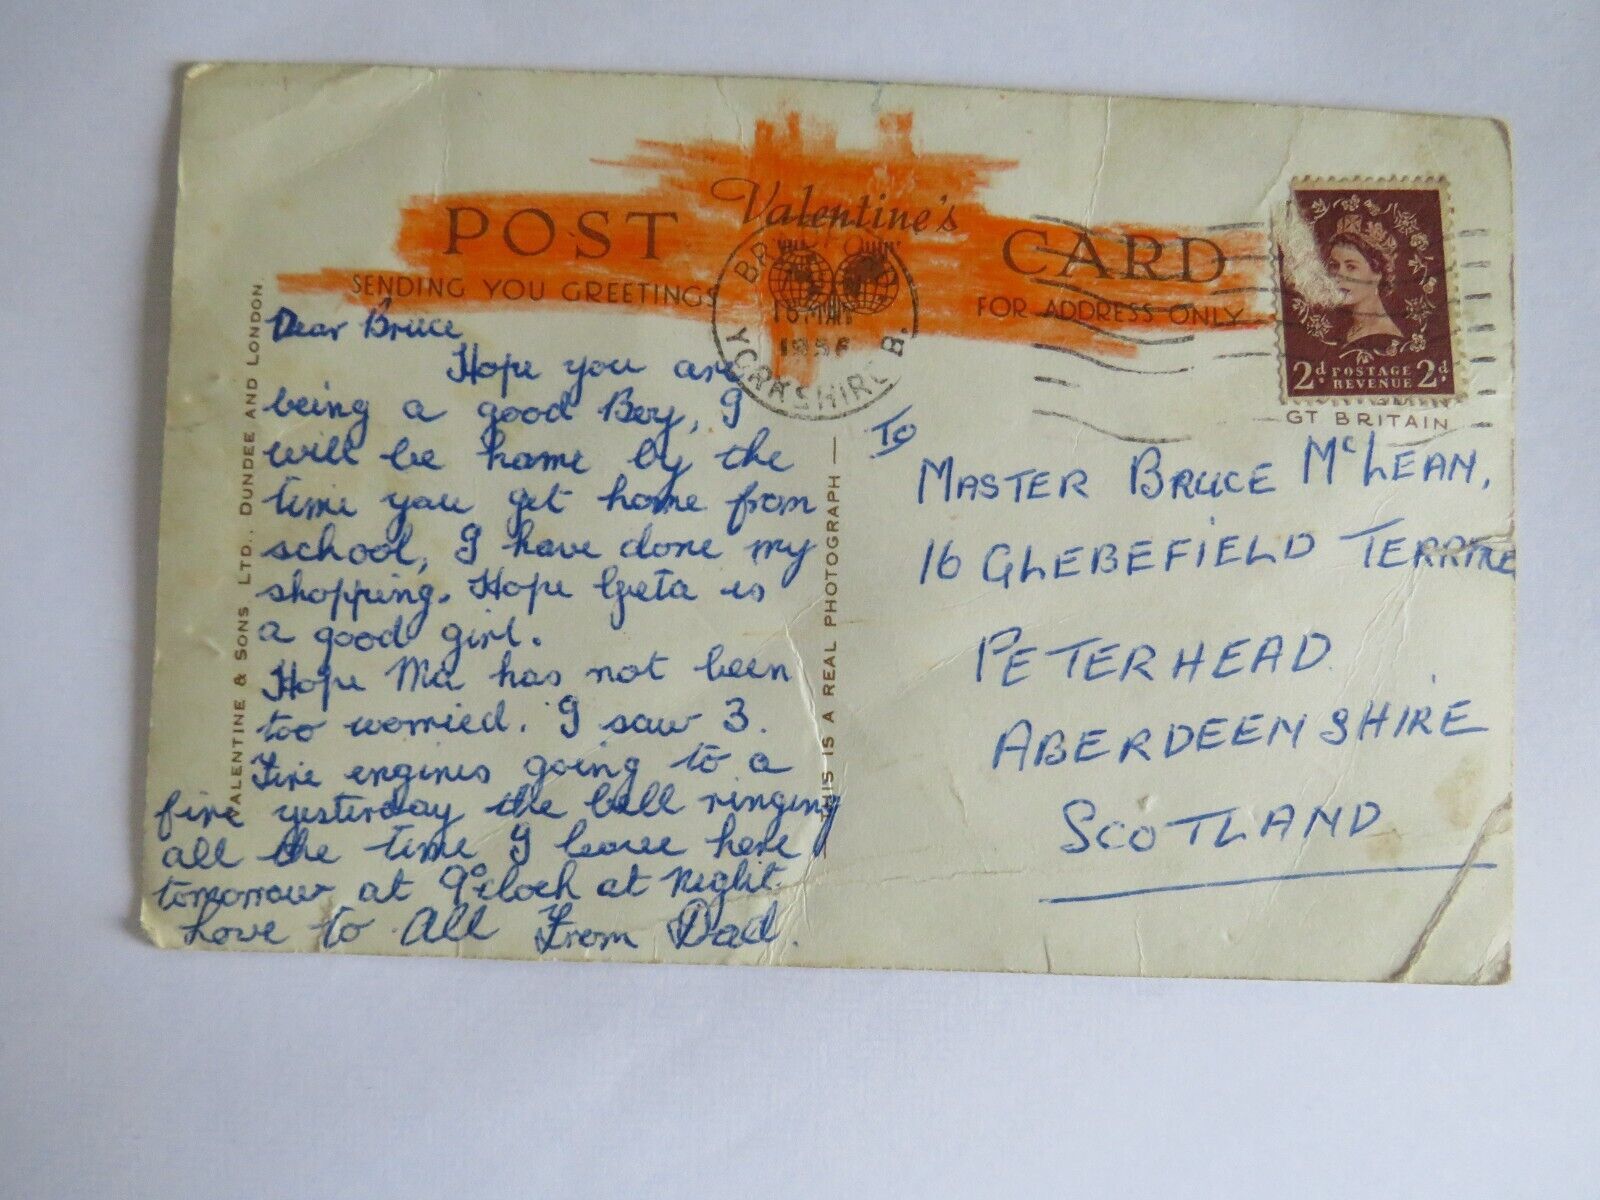 POST Valentine's CARD
SENDING YOU GREETINGS
FOR ADDRESS ONLY
YORKSHIRE B.
2d POSTAGE REVENUE 2d
GT BRITAIN
VALENTINE & SONS LTD., DUNDEE AND LONDON.
THIS IS A REAL PHOTOGRAPH
Dear Bruce
Hope you are
being a good Boy, I
will be home by the
time you get home from
school, I have done my
shopping. Hope Greta is
a good girl.
Hope Ma has not been
too worried. I saw 3.
Fire engines going to a
fire yesterday the bell ringing
all the time I leave here
tomorrow at 9 o'clock at Night.
Love to All From Dad.
To
MASTER BRUCE McLEAN,
16 GLEBEFIELD
PETERHEAD
ABERDEENSHIRE
SCOTLAND